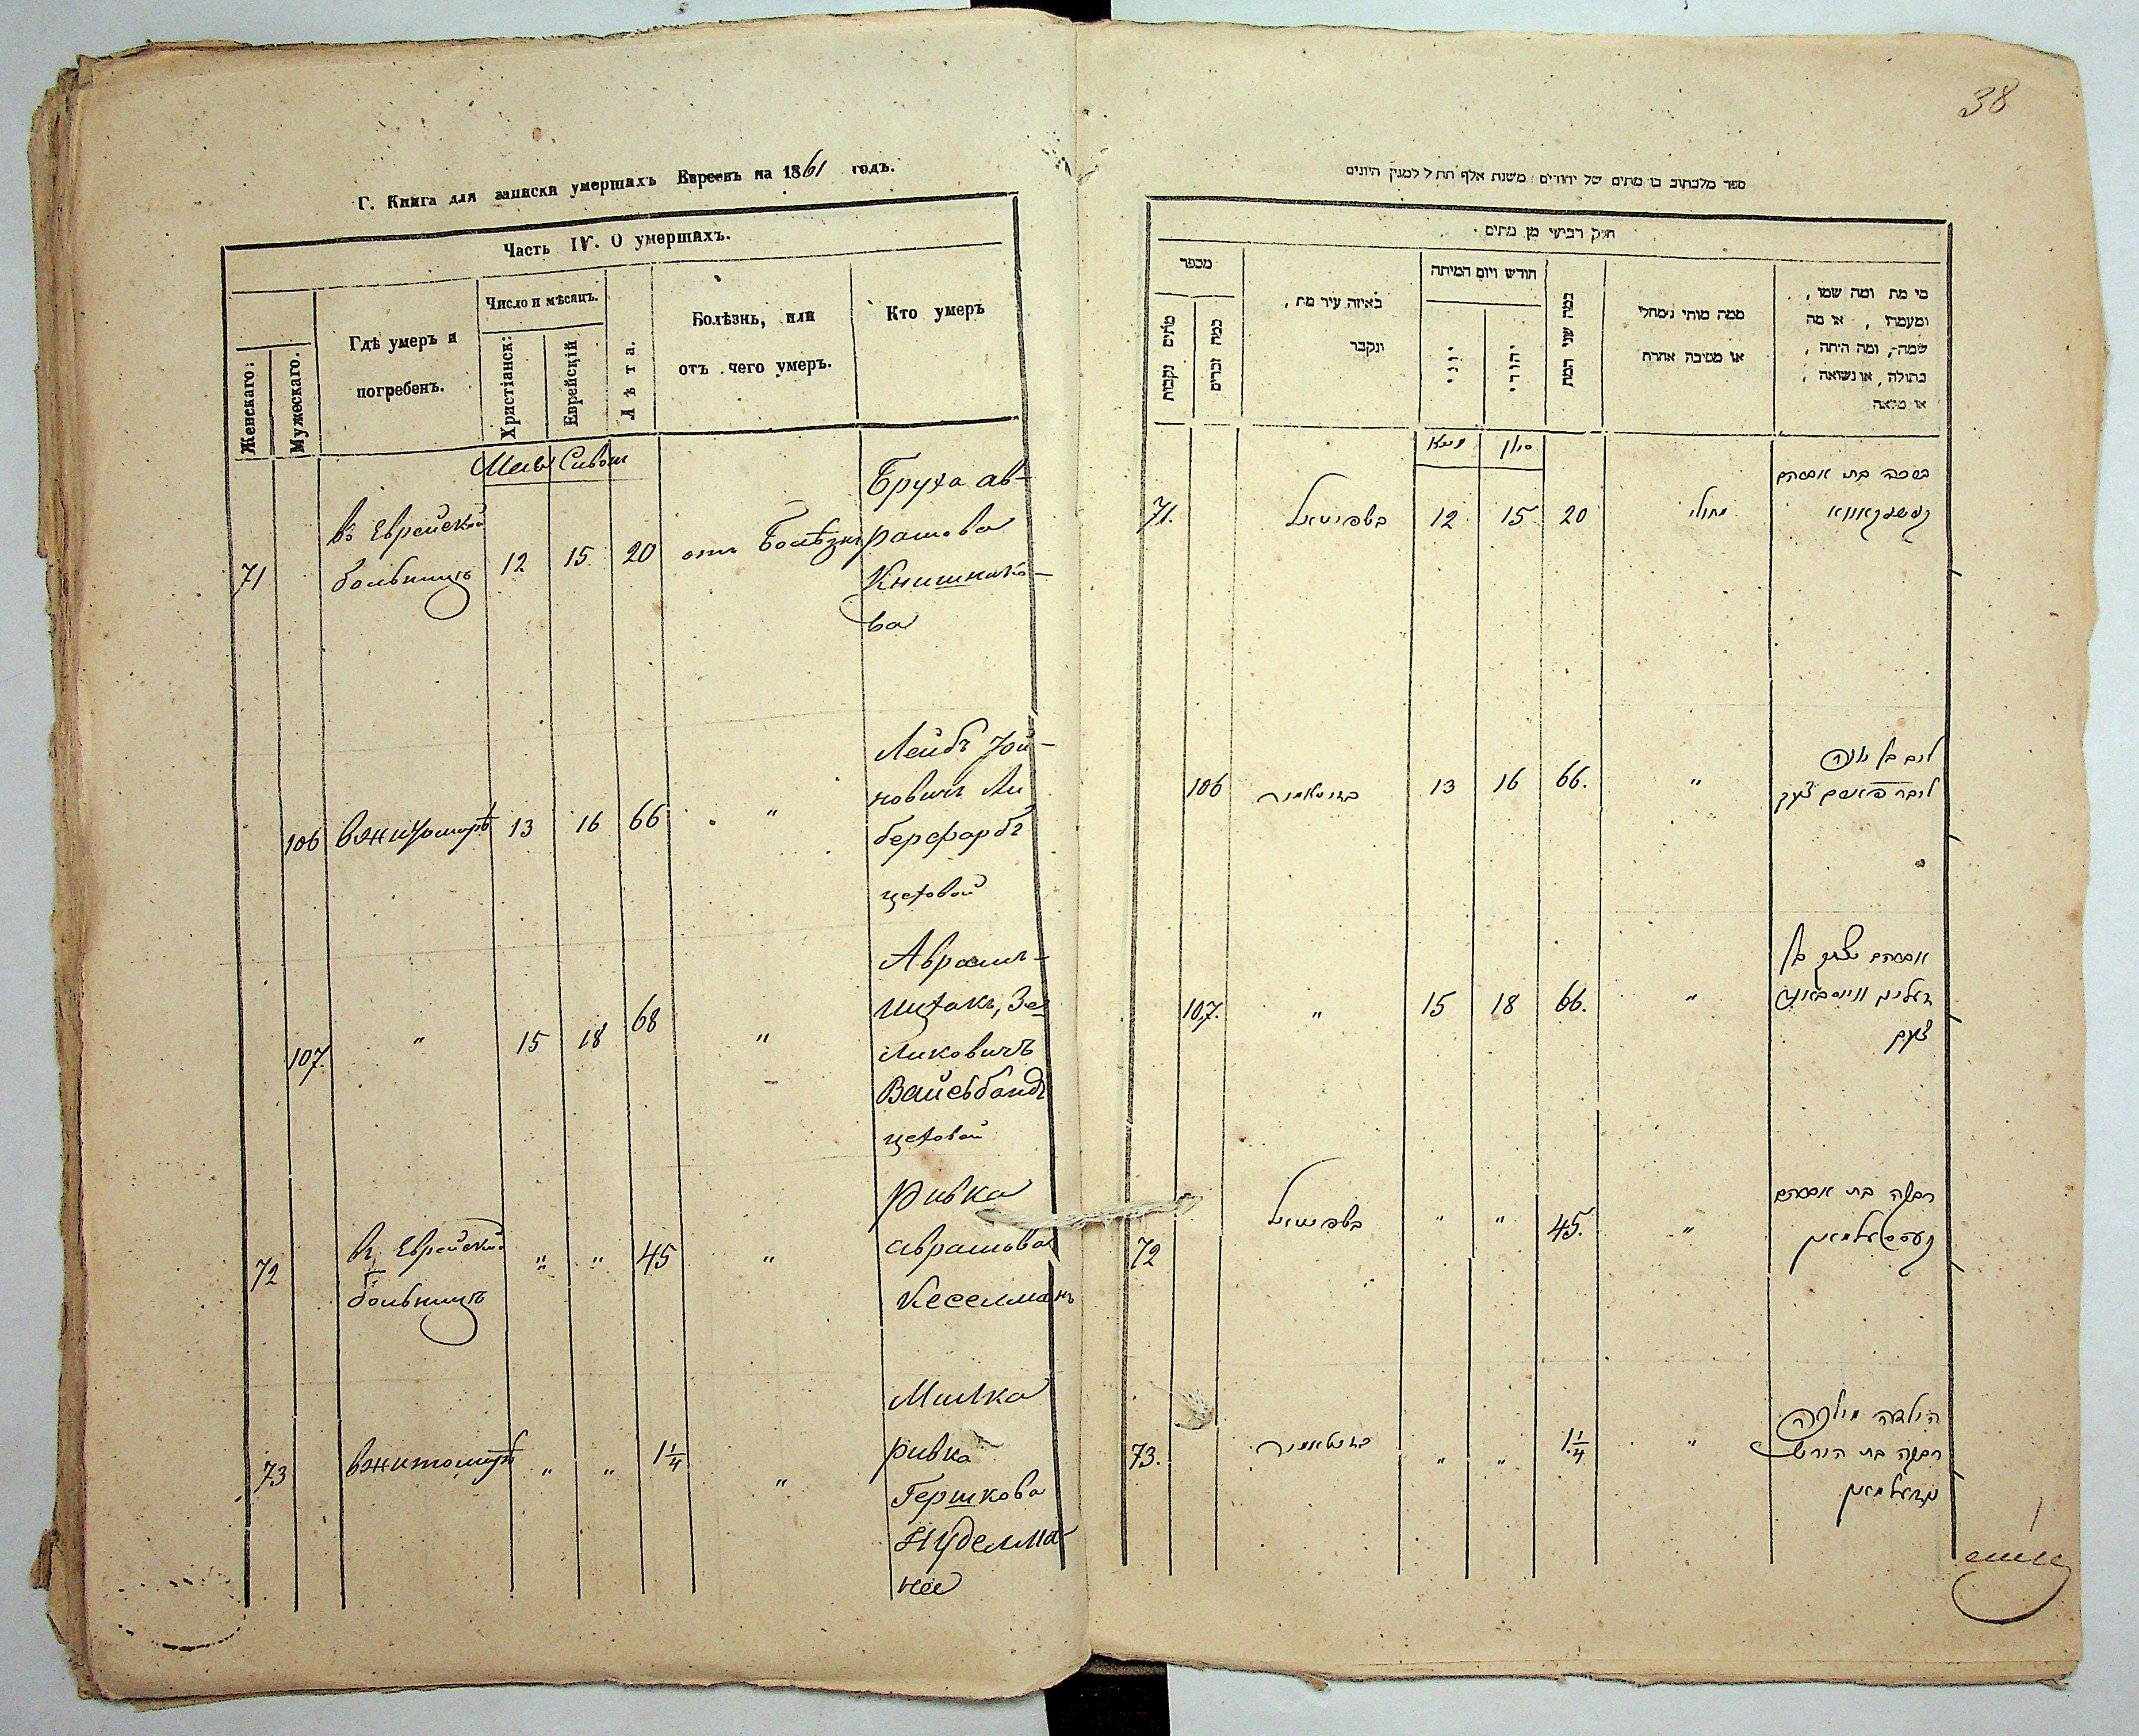 Г. Книга для записки умершихъ Евреевъ на 1861 годъ.
Часть IV. О умершихъ.
Женскаго:
Мужескаго.
Гдѣ умеръ и
погребенъ.
Число и мѣсяцъ.
Христіанск:
Еврейскій
Лѣта.
Болѣзнь, или
отъ чего умеръ.
Кто умеръ
Маія Сивон
71
въ Еврейской
больницѣ
12
15
20
отъ Болѣзни
Бруха ав-
рамова
Книшнико-
ва
106
вжитомирѣ
13
16
66
"
Лейбъ Іой-
новичъ Ли
берфарбъ
цеховой
107.
"
15
18
68
"
Аврамъ-
Ицхакъ, Зе
ликовичъ
Вайсбандъ
цеховой
72
въ Еврейской
больницѣ
"
"
45
"
Ривка
аврамова
Кеселманъ
73
вжитомирѣ
"
"
1 1/4
"
Милка
ривка
Гершкова
Нуделма
нъ
38
ספר מלכתוב בו מתים של יהודים משנת אלף תתל למנין היונים
חלק רביעי מן מתים
מספר
מתים נקבות
כמה זכרים
באיזה עיר מת,
ונקבר
חודש ויום המיתה
יוני
יהודי
כמה שני המת
ממה מותי מחלי
או מסיבה אחרת
מי מת ומה שמו,
ומעמדו, או מה
שמה, ומה היתה,
בתולה, או נשואה,
או
מאיא
סיון
71.
בשפיטאל
12
15
20
מחולי
בת אברהם
106
בזיטאמיר
13
16
66.
"
ליב בן יונה
ליבר פארב צעך
107.
"
15
18
66.
"
אברהם יצחק בן
זעליג ווייסבאנד
צעך
72
בשפיטאל
"
"
45.
"
רבקה בת אברהם
קעסעלמאן
73.
בזיטאמיר
"
"
1 1/4
"
הילדה מילקה
רבקה בת הירש
נודעלמאן